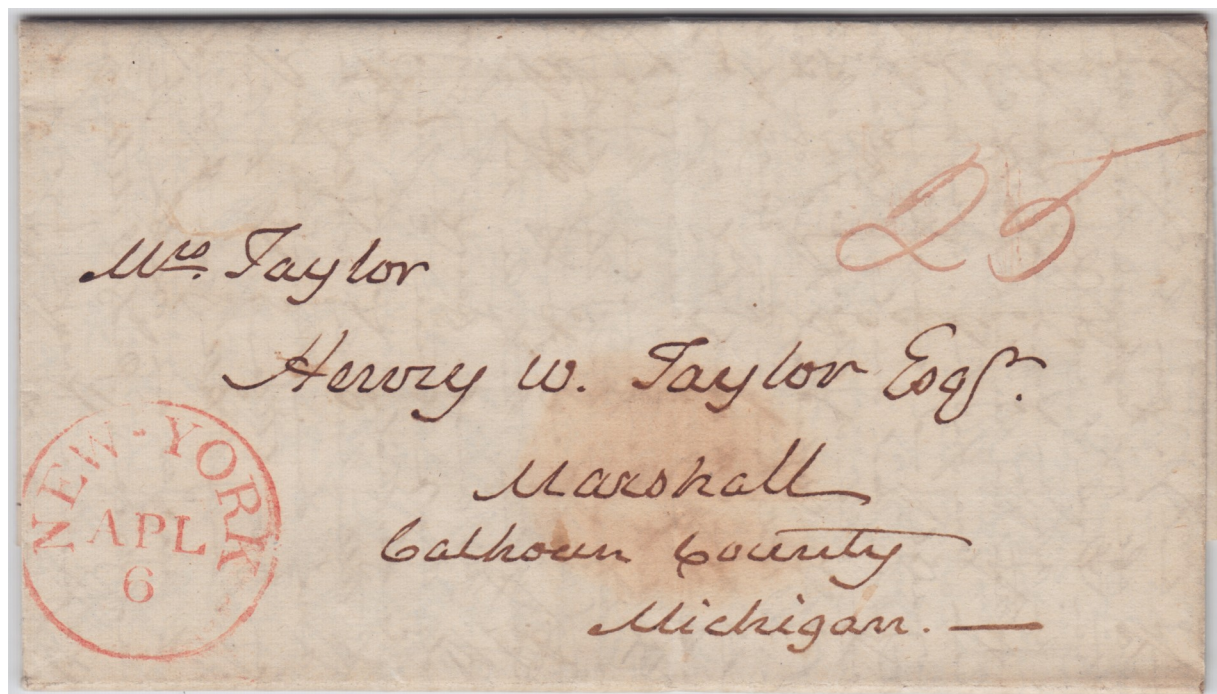 25
Mrs. Taylor
Henry W. Taylor Esqr.
Marshall
Calhoun County
Michigan. —
NEW-YORK
APL
6